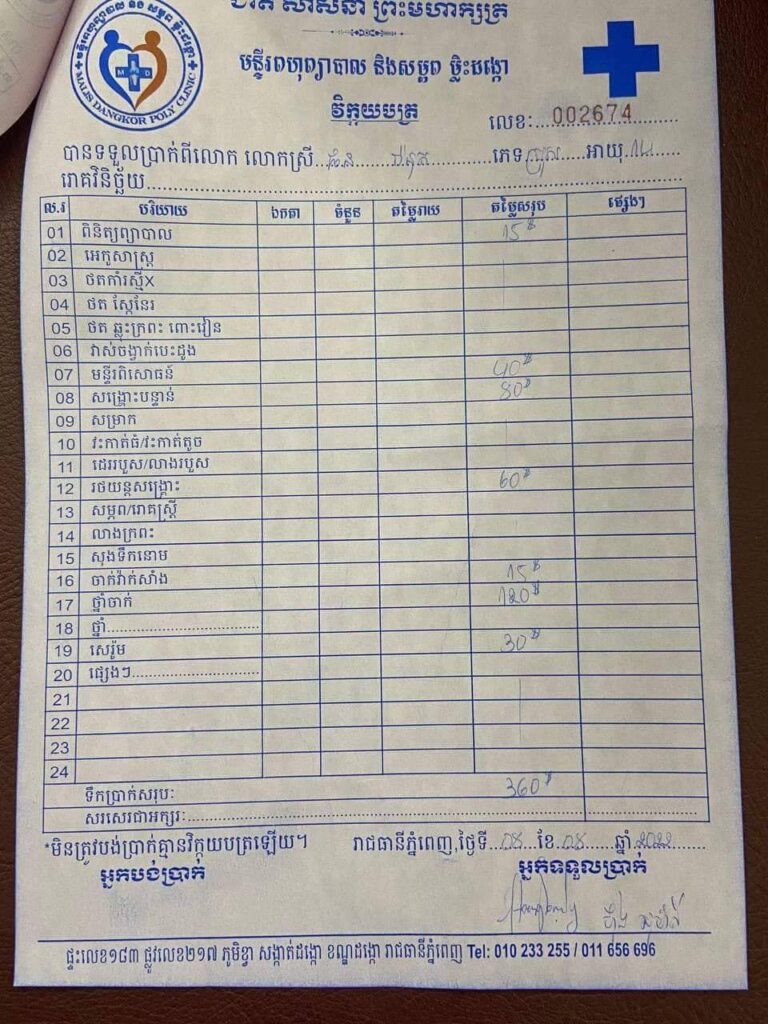 ជាតិ សាសនា ព្រះមហាក្សត្រ
មន្ទីរពហុព្យាបាល និងសម្ភព ម្លិះដង្កោ
MALIS DANGKOR POLY CLINIC
M D
វិក្កយបត្រ
លេខៈ 002674
បានទទួលប្រាក់ពីលោក លោកស្រី ភេទ ប្រុស អាយុ
រោគវិនិច្ឆ័យ
ល.រ បរិយាយ ឯកតា ចំនួន តម្លៃរាយ តម្លៃសរុប ផ្សេងៗ
01 ពិនិត្យព្យាបាល 15$
02 អេកូសាស្ត្រ
03 ថតកាំរស្មីX
04 ថត ស្កែនែរ
05 ថត ឆ្លុះក្រពះ ពោះវៀន
06 វាស់ចង្វាក់បេះដូង
07 មន្ទីរពិសោធន៍ 40$
08 សង្គ្រោះបន្ទាន់ 80$
09 សម្រាក
10 វះកាត់ធំ/វះកាត់តូច
11 ដេររបួស/លាងរបួស
12 រថយន្តសង្គ្រោះ 60$
13 សម្ភព/រោគស្ត្រី
14 លាងក្រពះ
15 សុងទឹកនោម
16 ចាក់វ៉ាក់សាំង 15$
17 ថ្នាំចាក់ 120$
18 ថ្នាំ
19 សេរ៉ូម 30$
20 ផ្សេងៗ
21
22
23
24
ទឹកប្រាក់សរុបៈ 360$
សរសេរជាអក្សរៈ
*មិនត្រូវបង់ប្រាក់គ្មានវិក្កយបត្រឡើយ។ រាជធានីភ្នំពេញ,ថ្ងៃទី ០៨ ខែ ០៨ ឆ្នាំ ២០២២
អ្នកបង់ប្រាក់ អ្នកទទួលប្រាក់
ផ្ទះលេខ១៨៣ ផ្លូវលេខ២១៧ ភូមិខ្វា សង្កាត់ដង្កោ ខណ្ឌដង្កោ រាជធានីភ្នំពេញ Tel: 010 233 255 / 011 656 696